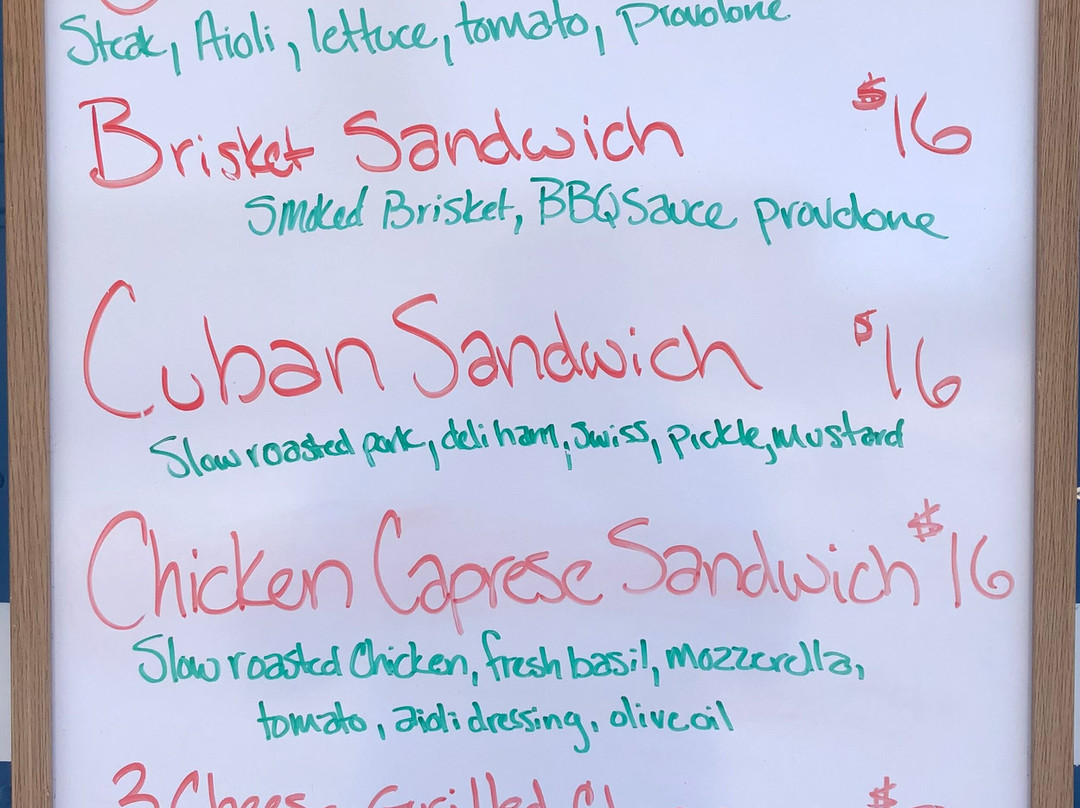 Steak, Aioli, lettuce, tomato, Provolone
Brisket Sandwich $16
Smoked Brisket, BBQ Sauce provolone
Cuban Sandwich $16
Slow roasted pork, deli ham, swiss, pickle, mustard
Chicken Caprese Sandwich $16
Slow roasted Chicken, fresh basil, mozzerella,
tomato, aioli dressing, olive oil
3 Cheese Grilled $